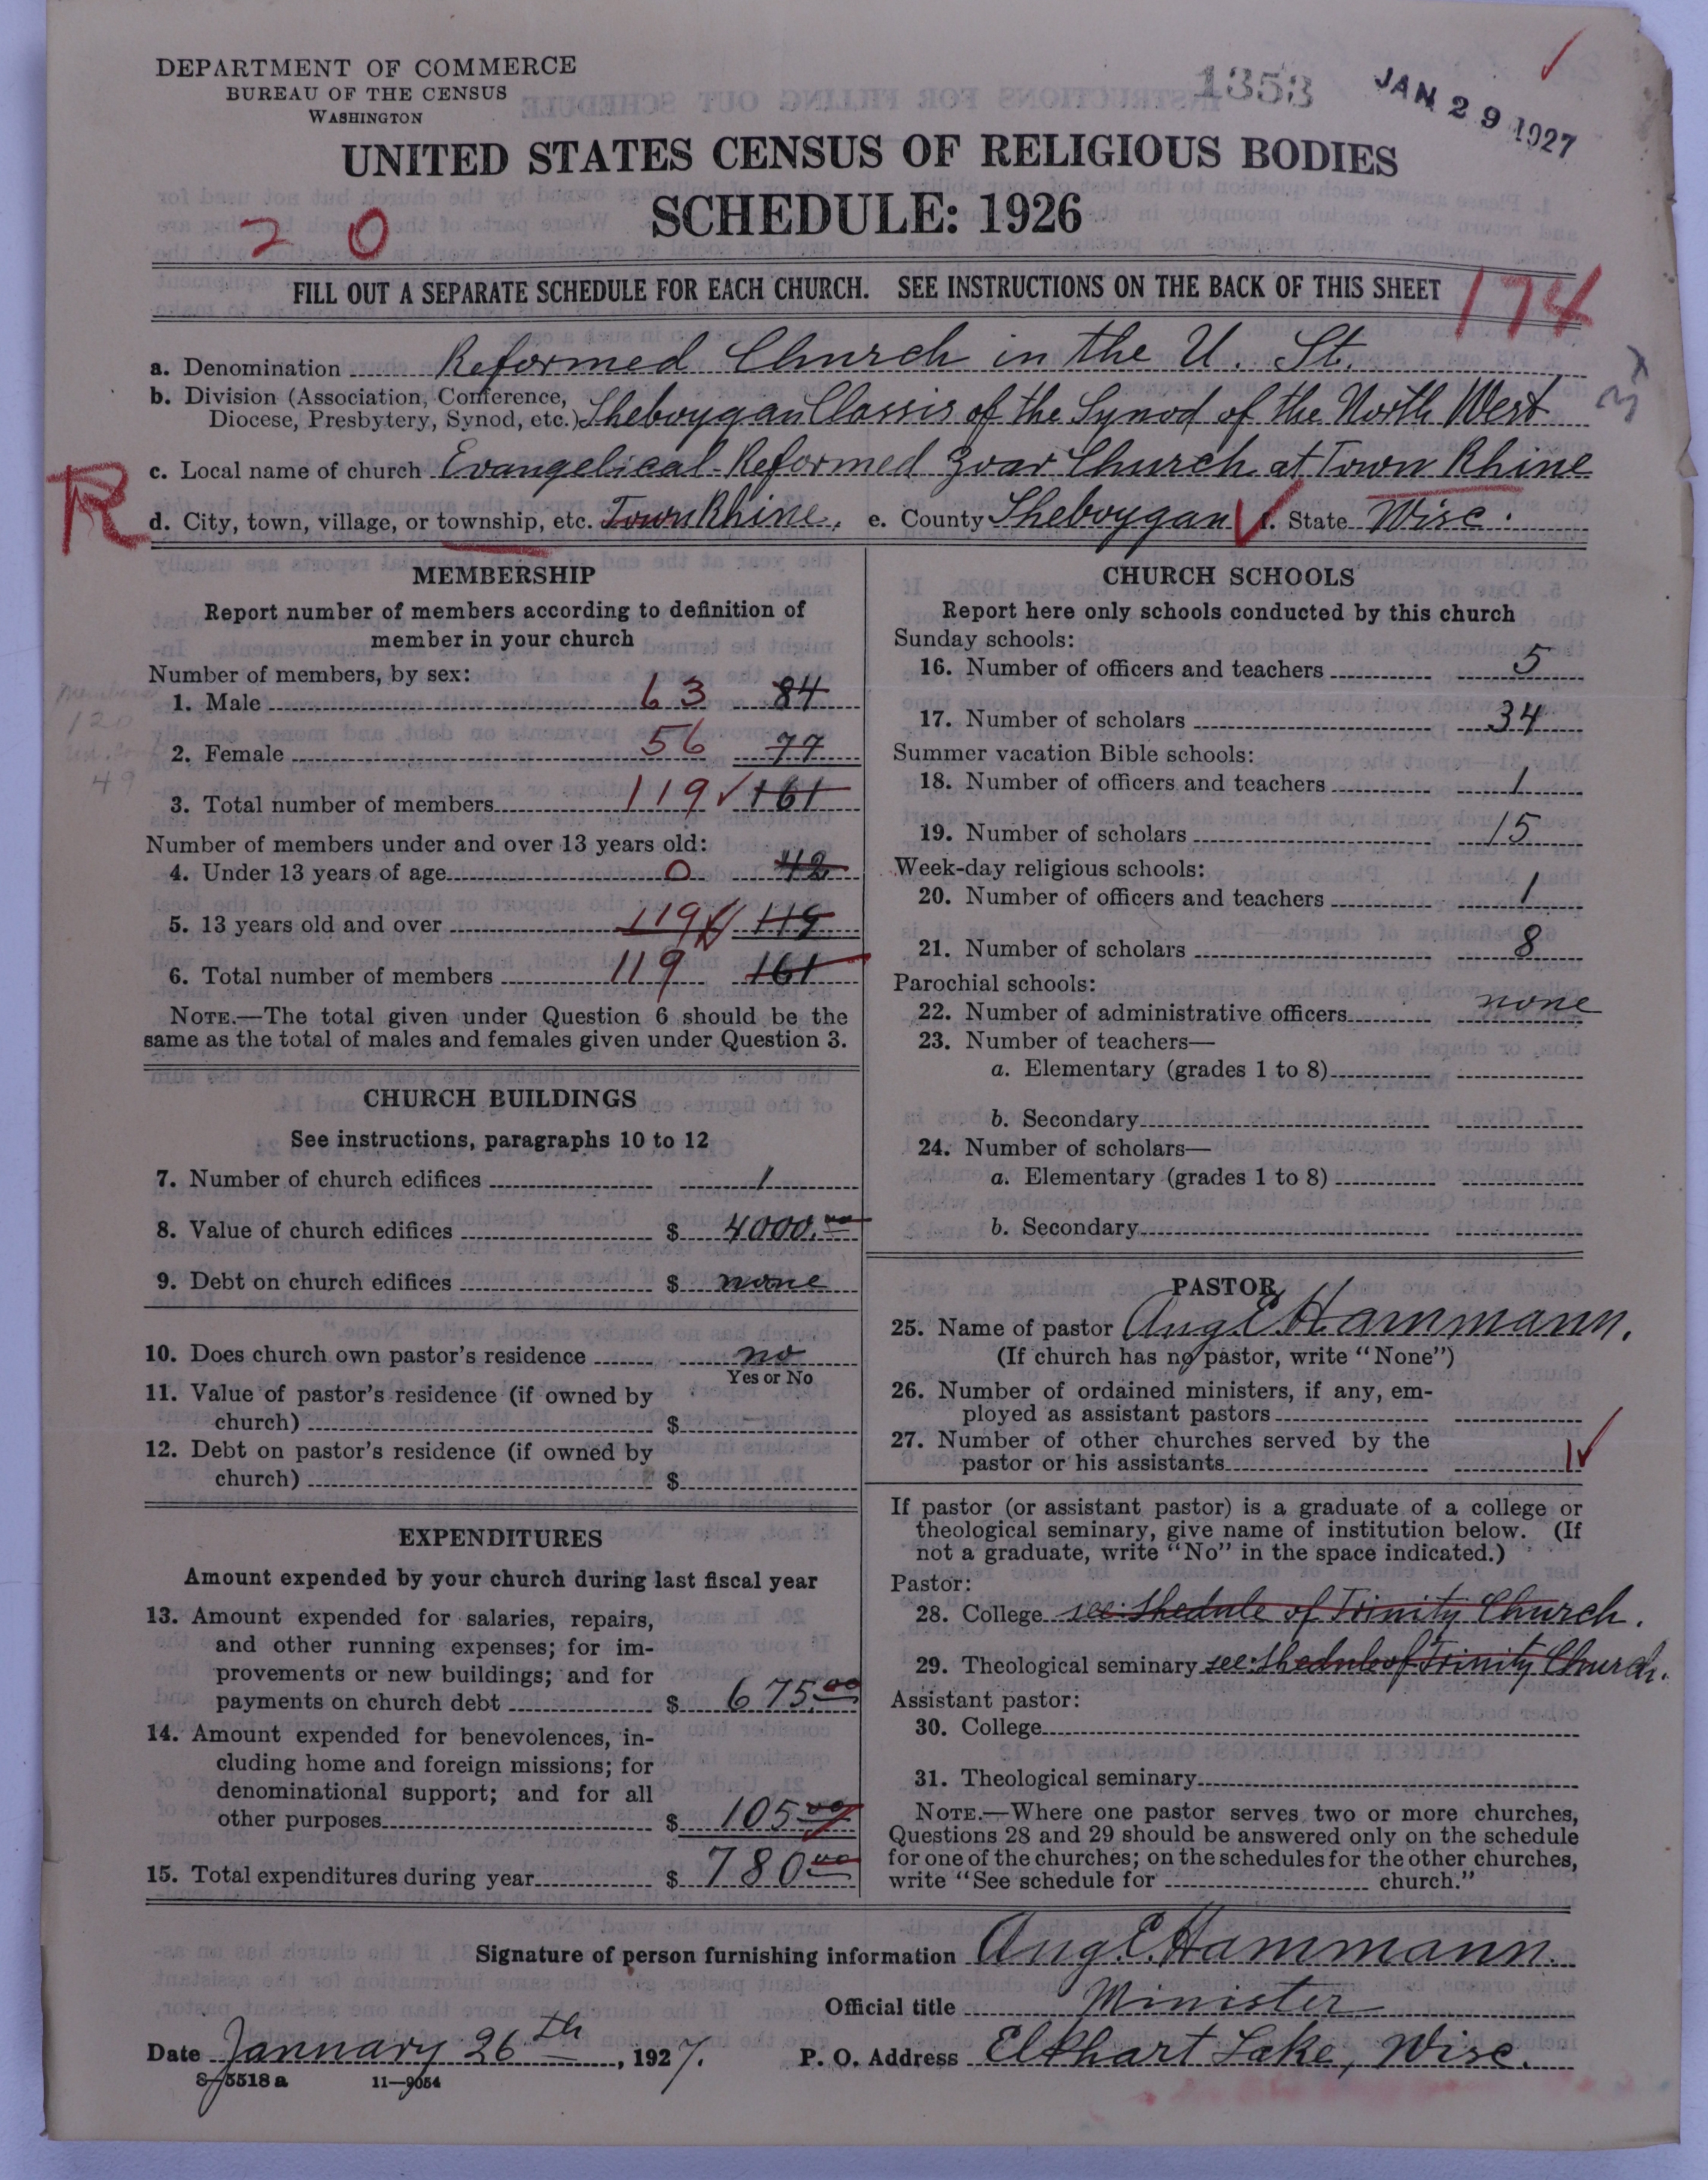 DEPARTMENT OF COMMERCE
BUREAU OF THE CENSUS
WASHINGTON
1353
JAN 29 1927
UNITED STATES CENSUS OF RELIGIOUS BODIES
SCHEDULE: 1926
2 0
FILL OUT A SEPARATE SCHEDULE FOR EACH CHURCH. SEE INSTRUCTIONS ON THE BACK OF THIS SHEET
174
a. Denomination Reformed Church in the U. St.
b. Division (Association, Conference,
Diocese, Presbytery, Synod, etc.) Sheboygan Classis of the Synod of the North West
c. Local name of church Evangelical-Reformed Zoar Church at Town Rhine
R
d. City, town, village, or township, etc. Town Rhine. e. County Sheboygan f. State Wisc.
MEMBERSHIP
Report number of members according to definition of
member in your church
Number of members, by sex:
1. Male 63 84
2. Female 56 77
3. Total number of members 119 ✓ 161
Members
120
49
Number of members under and over 13 years old:
4. Under 13 years of age 0 42
5. 13 years old and over 119 ✓ 119
6. Total number of members 119 161
NOTE.—The total given under Question 6 should be the
same as the total of males and females given under Question 3.
CHURCH BUILDINGS
See instructions, paragraphs 10 to 12
7. Number of church edifices 1
8. Value of church edifices $ 4000.00
9. Debt on church edifices $ none
10. Does church own pastor's residence no
Yes or No
11. Value of pastor's residence (if owned by
church) $
12. Debt on pastor's residence (if owned by
church) $
EXPENDITURES
Amount expended by your church during last fiscal year
13. Amount expended for salaries, repairs,
and other running expenses; for im-
provements or new buildings; and for
payments on church debt $ 675.00
14. Amount expended for benevolences, in-
cluding home and foreign missions; for
denominational support; and for all
other purposes $ 105.00
15. Total expenditures during year $ 780.00
CHURCH SCHOOLS
Report here only schools conducted by this church
Sunday schools:
16. Number of officers and teachers 5
17. Number of scholars 34
Summer vacation Bible schools:
18. Number of officers and teachers 1
19. Number of scholars 15
Week-day religious schools:
20. Number of officers and teachers 1
21. Number of scholars 8
Parochial schools:
22. Number of administrative officers none
23. Number of teachers—
a. Elementary (grades 1 to 8)
b. Secondary
24. Number of scholars—
a. Elementary (grades 1 to 8)
b. Secondary
PASTOR
25. Name of pastor Aug. E. Hammann.
(If church has no pastor, write "None")
26. Number of ordained ministers, if any, em-
ployed as assistant pastors
27. Number of other churches served by the
pastor or his assistants 1 ✓
If pastor (or assistant pastor) is a graduate of a college or
theological seminary, give name of institution below. (If
not a graduate, write "No" in the space indicated.)
Pastor:
28. College see shedule of Trinity Church.
29. Theological seminary see shedule of Trinity Church.
Assistant pastor:
30. College
31. Theological seminary
NOTE.—Where one pastor serves two or more churches,
Questions 28 and 29 should be answered only on the schedule
for one of the churches; on the schedules for the other churches,
write "See schedule for church."
Signature of person furnishing information Aug. E. Hammann.
Official title Minister
Date January 26th, 1927. P. O. Address Elkhart Lake, Wisc.
8-5518 a 11-9054